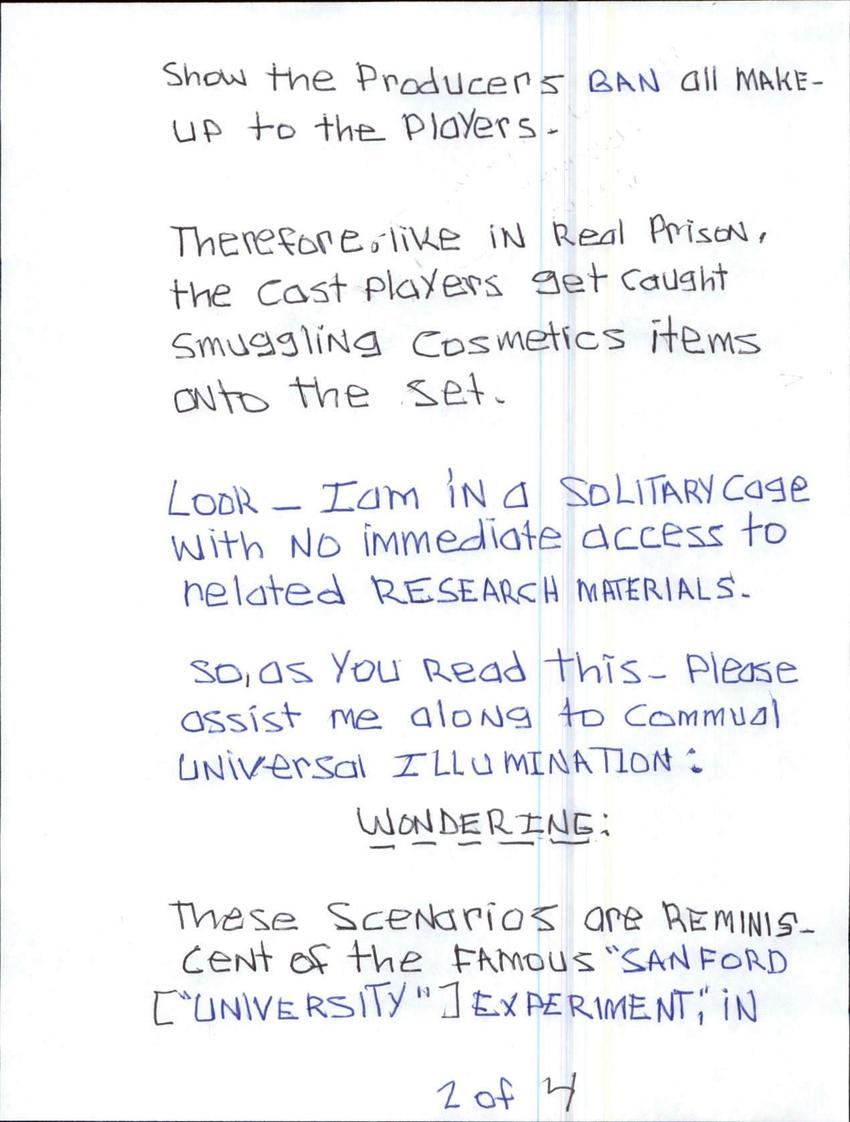 Show the Producers BAN all MAKE-
UP to the Players.
Therefore, like in Real Prison,
the Cast Players get caught
smuggling Cosmetics items
onto the set.
LOOK - I am in a SOLITARY Cage
with NO immediate access to
related RESEARCH MATERIALS.
So, as You Read this - Please
assist me along to Commual
UNiversal ILLUMINATION:
WONDERING:
These Scenarios are REMINIS-
CENT of the FAMOUS "SANFORD
["UNIVERSITY"] EXPERIMENT," iN
2 of 4